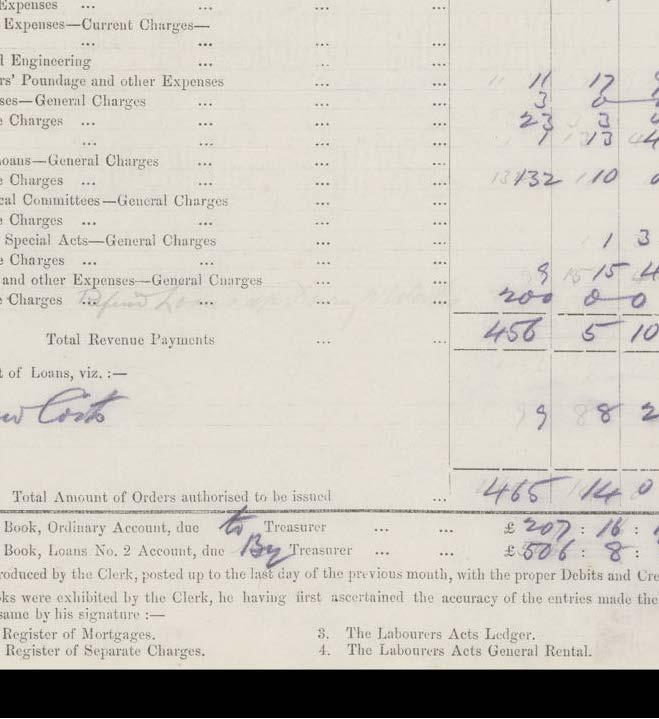 Expenses ... ... ...
Expenses—Current Charges—
... ... ... ...
d Engineering ... ...
rs' Poundage and other Expenses ... ... 11 17
ses—General Charges ... ... ... 3 0
e Charges ... ... ... ... 23 3
... ... ... ... 1 13 4
Loans—General Charges ... ... ...
e Charges ... ... ... ... 132 10 0
cal Committees—General Charges ... ...
e Charges ... ... ... ...
Special Acts—General Charges ... ... 1 3
e Charges ... ... ... ...
and other Expenses—General Charges ... ... 9 15 4
e Charges ... ... ... 200 0 0
Total Revenue Payments ... ... 456 5 10
t of Loans, viz. :—
Costs 9 8 2
Total Amount of Orders authorised to be issued ... 465 14 0
Book, Ordinary Account, due to Treasurer ... ... £ 207 : 16 :
Book, Loans No. 2 Account, due By Treasurer ... ... £ 506 : 8 :
roduced by the Clerk, posted up to the last day of the previous month, with the proper Debits and Cre
ks were exhibited by the Clerk, he having first ascertained the accuracy of the entries made the
same by his signature :—
Register of Mortgages. 3. The Labourers Acts Ledger.
Register of Separate Charges. 4. The Labourers Acts General Rental.